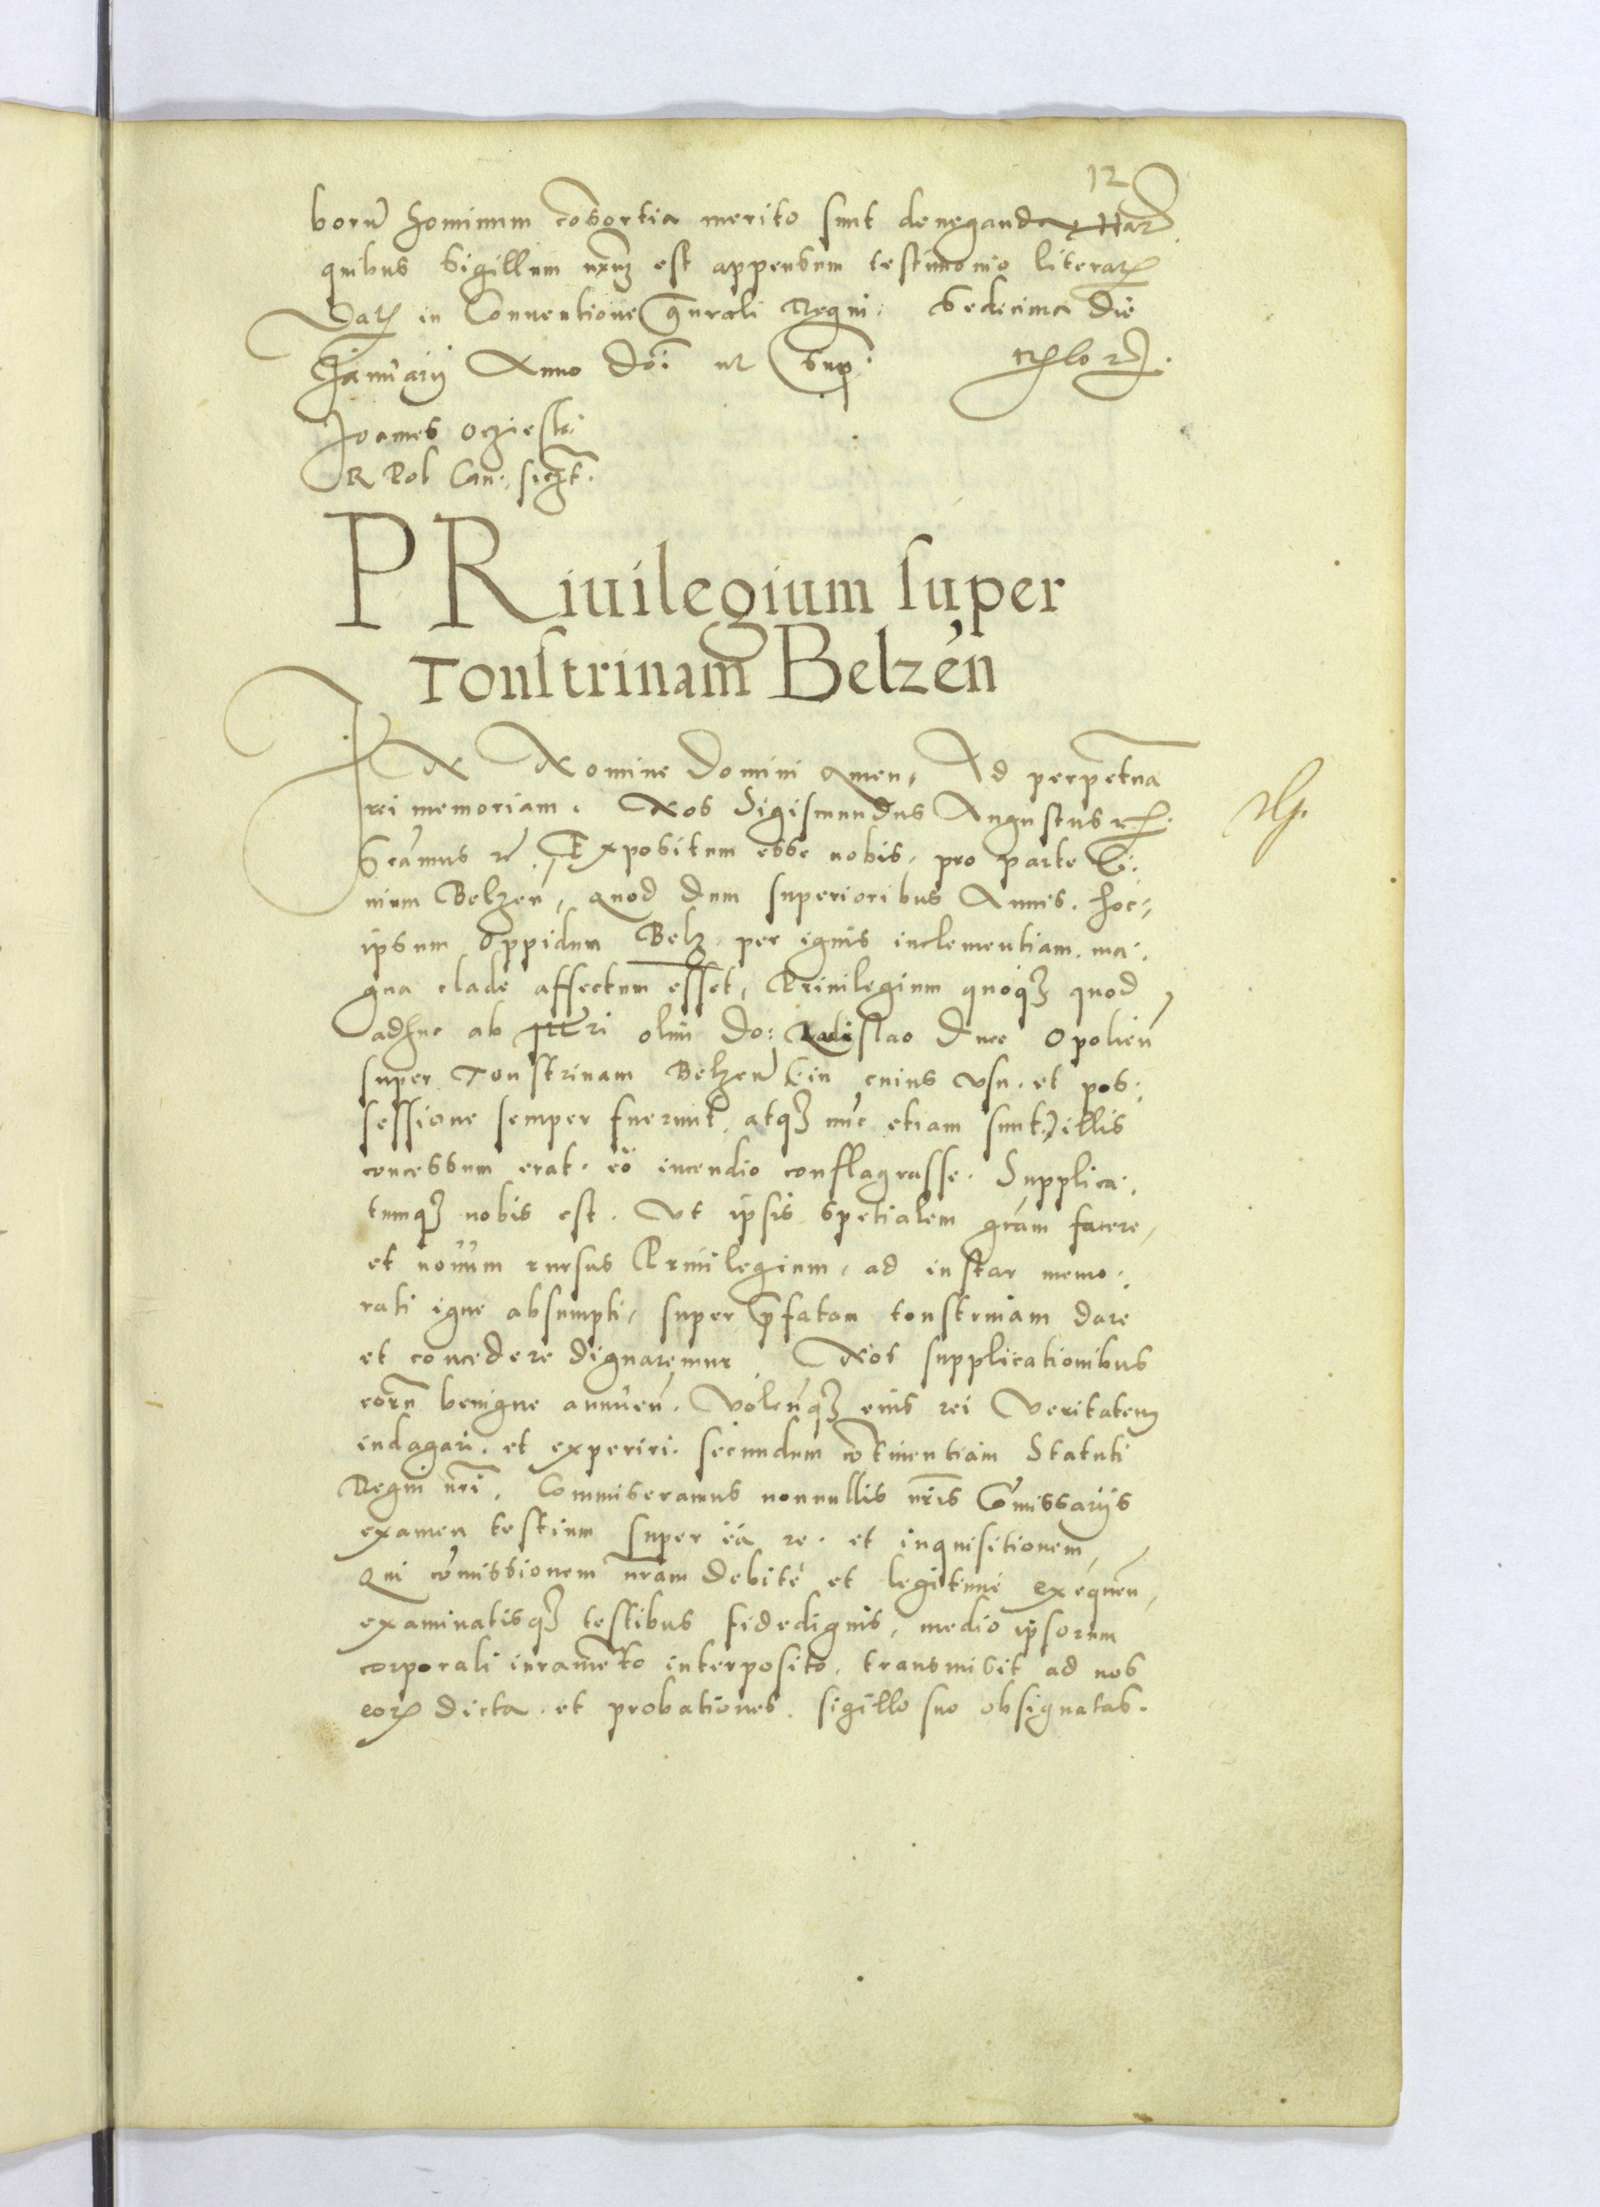 12
borũ hominum cõsortia merito sunt deneganda Har
quibus Sigillum nr̃um est appensum testimonio literarꝝ
Datꝝ in Conuentione gn̄rali Regni. Sedecima die
Januarij Anno Dñi ut Supr.
Joannes Oczieski
R Pol Can. sscpt.
PRiuilegium super
Tonstrinam Belzen̄
IN Nomine Domini Amen, Ad perpetuã
rei memoriam. Nos Sigismundus Augustus
Scãmus Expositum esse nobis, pro parte Ci,
uium Belzen̄, quod dum superioribus Annis. hoc,
ipsum Oppidum Belz per ignis inclementiam. ma,
gna clade affectum esset, Priuilegium quoqꝫ quod
adhuc ab Ill̃ri olim Do: Ladislao Duce Opolień
super Tonstrinam Belzen̄ (in cuius vsu. et pos,
sessione semper fuerunt, atqꝫ nũc etiam sunt) illis
concessum erat. eo incendio conflagrasse. Supplica,
tumqꝫ nobis est. Vt ipsis spetialem grãm facere,
et nouum rursus Priuilegium, ad instar memo,
rati igne absumpti, super p̃fatam tonstrinam dare
et concedere dignaremur Nos supplicationibus
eorũ benigne annuen̄. Volen̄qꝫ eius rei Veritatem
indagari. et experiri. secundum cõtinentiam Statuti
Regni nr̃i. Commiseramus nonnullis nr̃is Cõmissarijs
examen testium super ea re. et inquisitionem,
Qui cõmissionem nr̃am debite et legitime exequen̄,
examinatisqꝫ testibus fidedignis, medio ipsorum
corporali iuramẽto interposito, transmisit ad nos
eorꝝ dicta. et probationes. sigillo suo obsignatas.